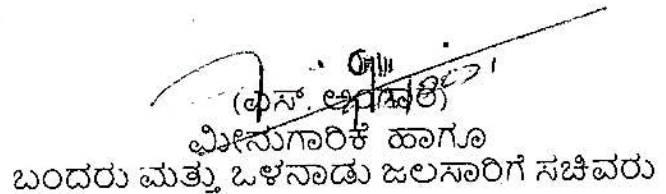 (ಎಸ್. ಅಂಗಾರ)
ಮೀನುಗಾರಿಕೆ ಹಾಗೂ
ಬಂದರು ಮತ್ತು ಒಳನಾಡು ಜಲಸಾರಿಗೆ ಸಚಿವರು